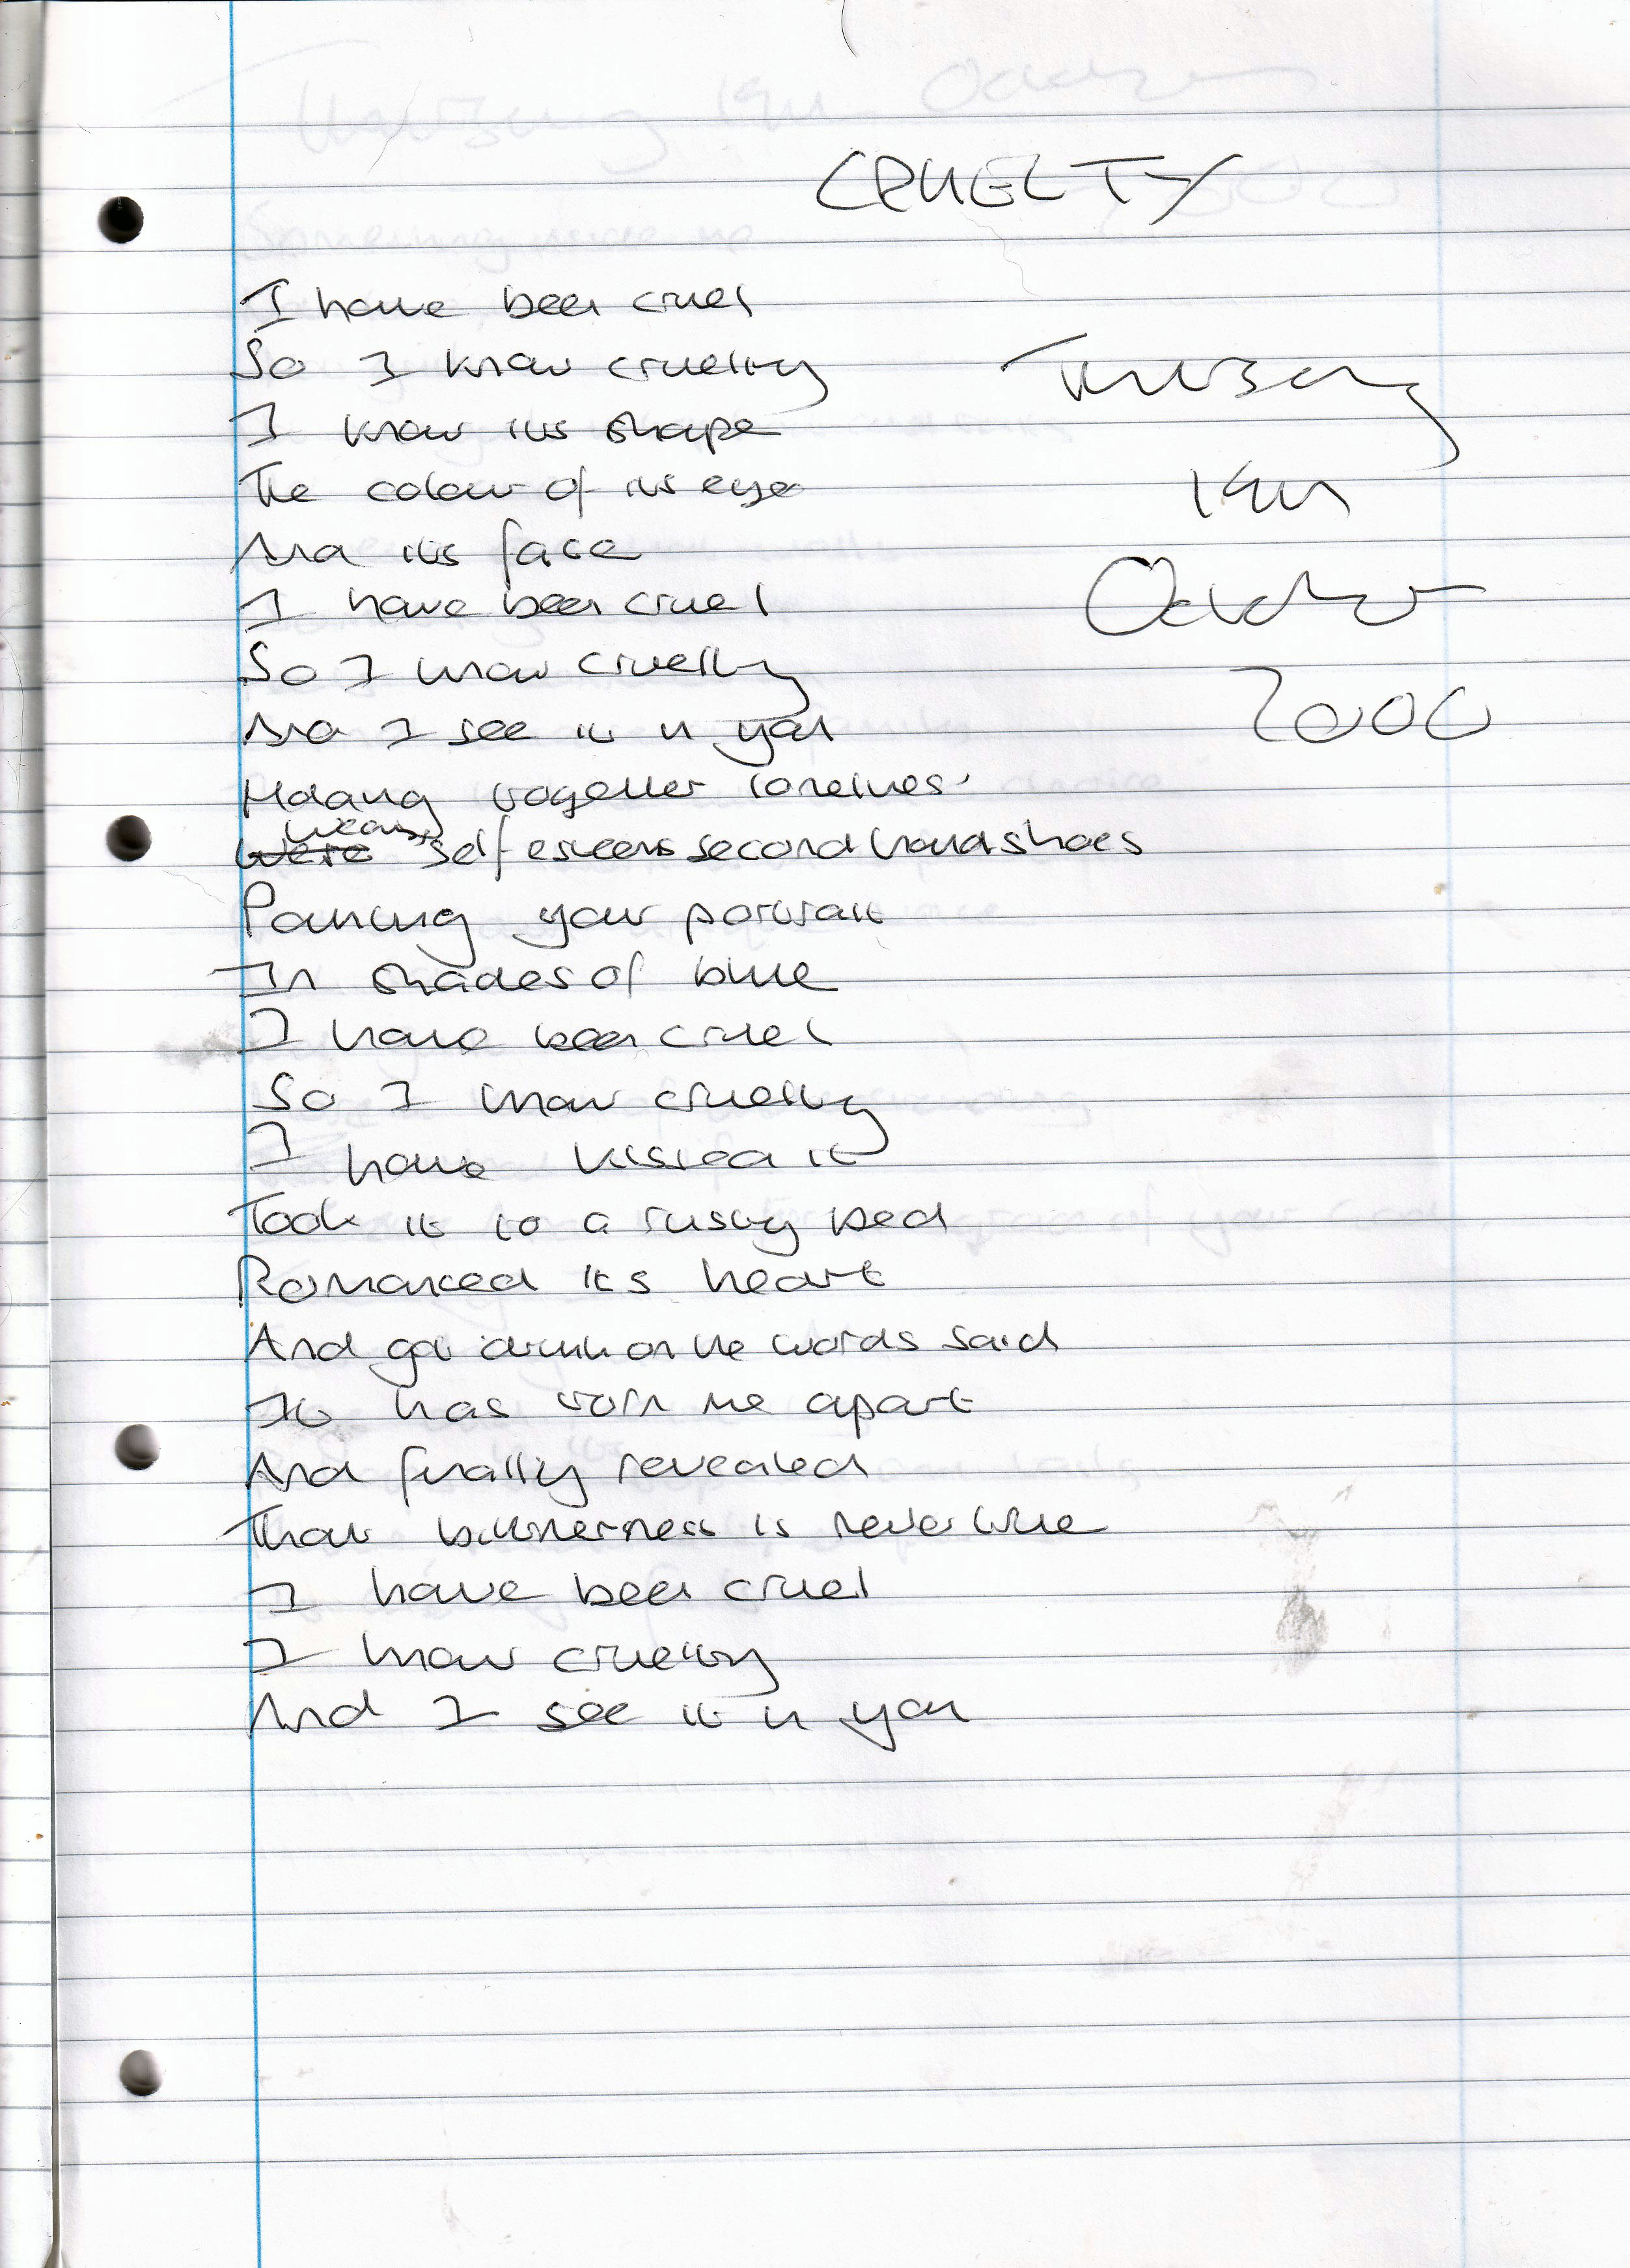 CRUELTY
I have been cruel
So I know cruelty
I know its shape
The colour of its eye
And its face
I have been cruel
So I know cruelty
And I see it in you
Holding together loneliness
wearing self esteems second hand shoes
Painting your portrait
In shades of blue
I have been cruel
So I know cruelty
I have kissed it
Took it to a rusty bed
Romanced its heart
And got drunk on the words said
It has torn me apart
And finally revealed
That bitterness is never true
I have been cruel
I know cruelty
And I see it in you
Thursday
19th
October
2000